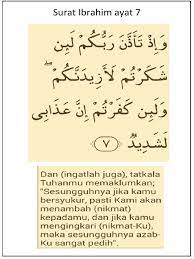 Surat Ibrahim ayat 7
وَإِذْ تَأَذَّنَ رَبُّكُمْ لَئِن
شَكَرْتُمْ لَأَزِيدَنَّكُمْ ۖ
وَلَئِن كَفَرْتُمْ إِنَّ عَذَابِى
لَشَدِيدٌ ﴿٧﴾
Dan (ingatlah juga), tatkala
Tuhanmu memaklumkan;
"Sesungguhnya jika kamu
bersyukur, pasti Kami akan
menambah (nikmat)
kepadamu, dan jika kamu
mengingkari (nikmat-Ku),
maka sesungguhnya azab-
Ku sangat pedih".